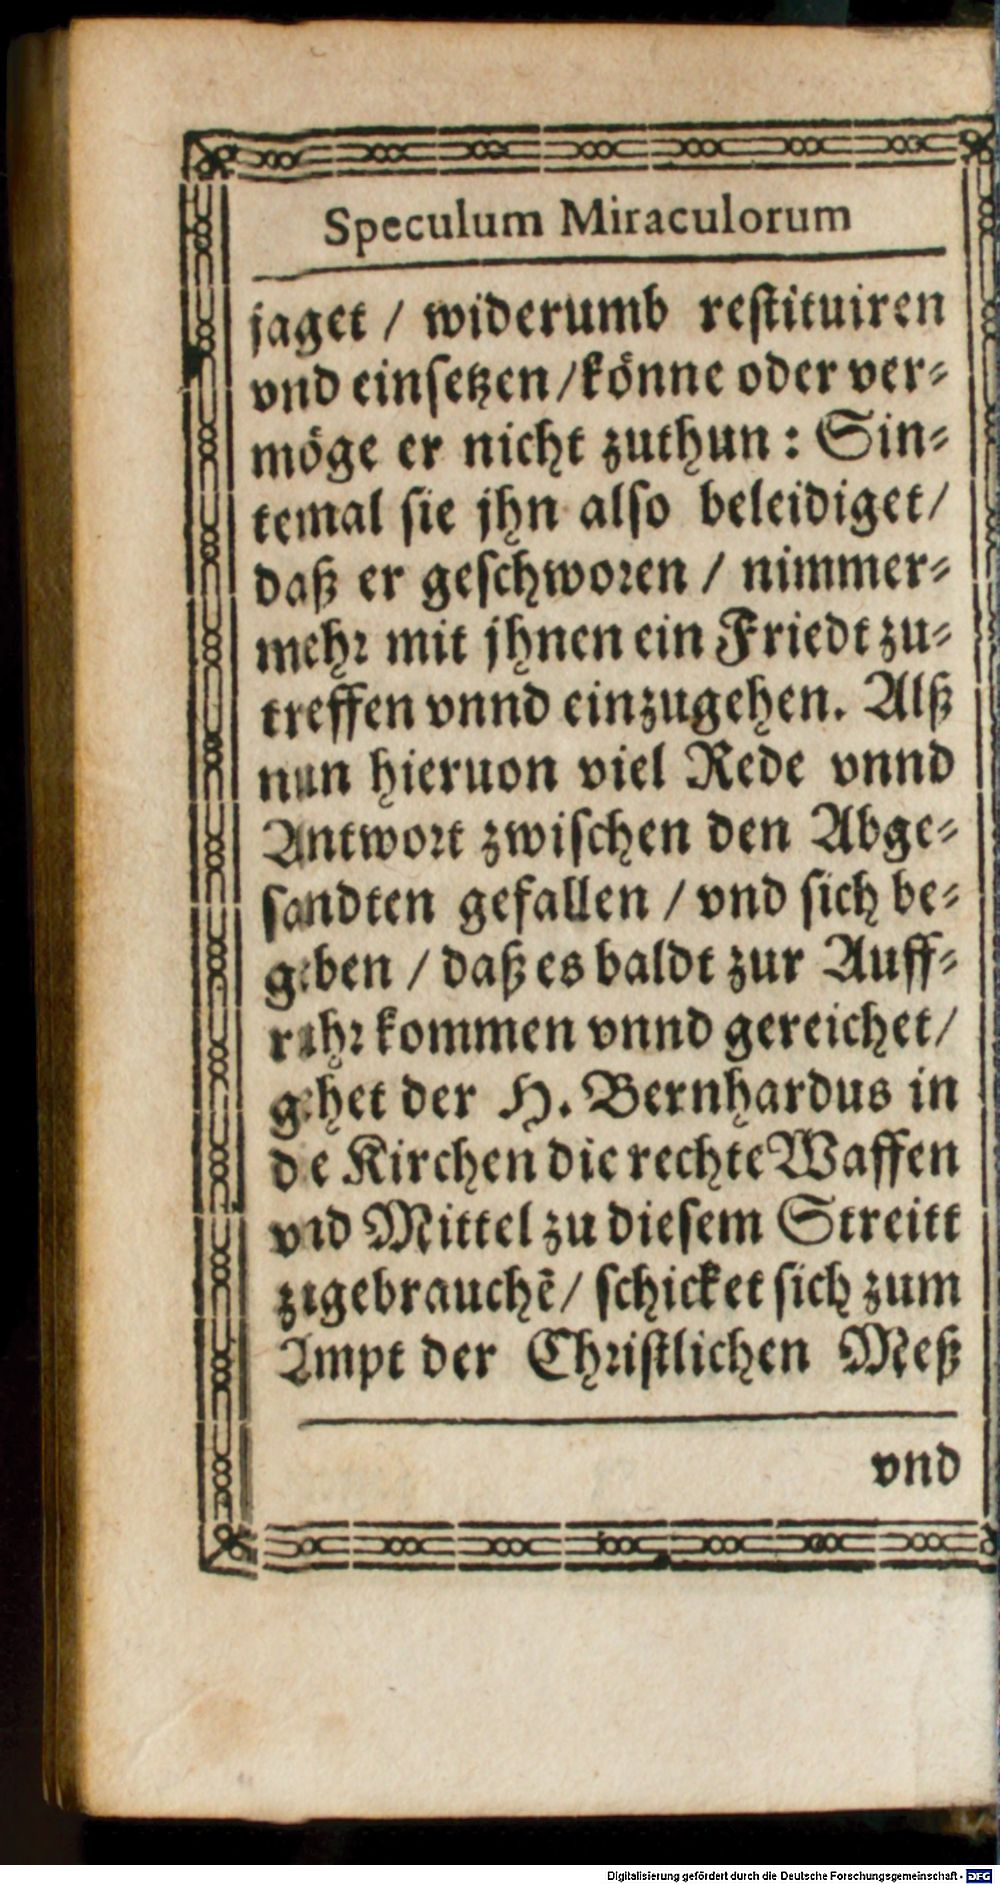 Speculum Miraculorum
jaget / widerumb restituiren
vnd einsetzen / könne oder ver-
möge er nicht zuthun : Sin-
temal sie jhn also beleidiget /
daß er geschworen / nimmer-
mehr mit jhnen ein Friedt zu-
treffen vnnd einzugehen. Alß
nun hieruon viel Rede vnnd
Antwort zwischen den Abge-
sandten gefallen / vnd sich be-
geben / daß es baldt zur Auff-
ruhr kommen vnnd gereichet /
gehet der H. Bernhardus in
die Kirchen die rechte Waffen
vnd Mittel zu diesem Streitt
zugebrauchē / schicket sich zum
Ampt der Christlichen Meß
vnd
Digitalisierung gefördert durch die Deutsche Forschungsgemeinschaft - DFG